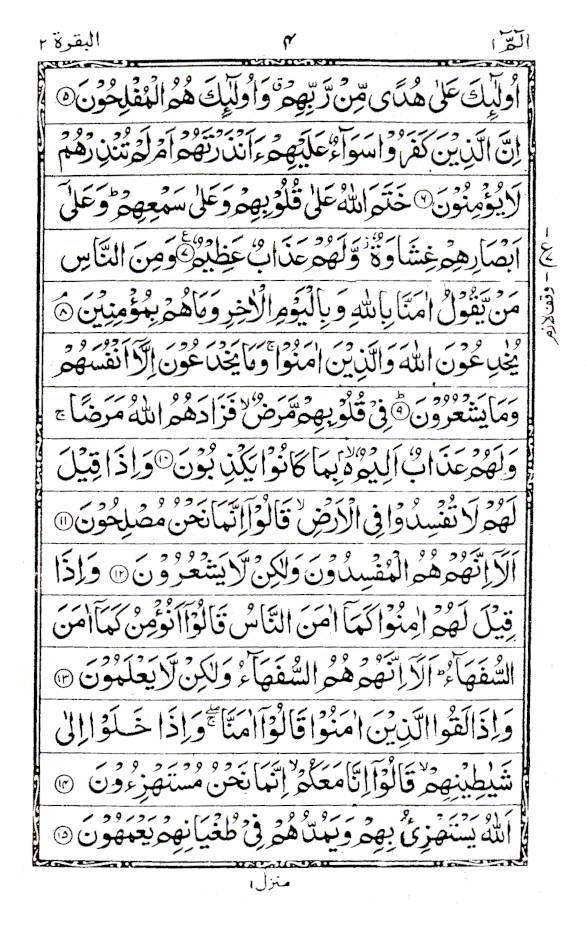 الٓمّٓ ١ ۴ البقرة ٢
اُولٰٓئِكَ عَلٰی هُدًی مِّنْ رَّبِّهِمْ ۗ وَاُولٰٓئِكَ هُمُ الْمُفْلِحُوْنَ ۵
اِنَّ الَّذِیْنَ كَفَرُوْا سَوَآءٌ عَلَیْهِمْ ءَاَنْذَرْتَهُمْ اَمْ لَمْ تُنْذِرْهُمْ
لَا یُؤْمِنُوْنَ ۶ خَتَمَ اللّٰهُ عَلٰی قُلُوْبِهِمْ وَعَلٰی سَمْعِهِمْ ؕ وَعَلٰٓی
اَبْصَارِهِمْ غِشَاوَةٌ ؗ وَّلَهُمْ عَذَابٌ عَظِیْمٌ ۷ وَمِنَ النَّاسِ
مَنْ یَّقُوْلُ اٰمَنَّا بِاللّٰهِ وَبِالْیَوْمِ الْاٰخِرِ وَمَا هُمْ بِمُؤْمِنِیْنَ ۘ ۸
یُخٰدِعُوْنَ اللّٰهَ وَالَّذِیْنَ اٰمَنُوْا ۚ وَمَا یَخْدَعُوْنَ اِلَّاۤ اَنْفُسَهُمْ
وَمَا یَشْعُرُوْنَ ؕ ۹ فِیْ قُلُوْبِهِمْ مَّرَضٌ ۙ فَزَادَهُمُ اللّٰهُ مَرَضًا ۚ
وَلَهُمْ عَذَابٌ اَلِیْمٌ ۙ۬ بِمَا كَانُوْا یَكْذِبُوْنَ ۱۰ وَاِذَا قِیْلَ
لَهُمْ لَا تُفْسِدُوْا فِی الْاَرْضِ ۙ قَالُوْۤا اِنَّمَا نَحْنُ مُصْلِحُوْنَ ۱۱
اَلَاۤ اِنَّهُمْ هُمُ الْمُفْسِدُوْنَ وَلٰكِنْ لَّا یَشْعُرُوْنَ ۱۲ وَاِذَا
قِیْلَ لَهُمْ اٰمِنُوْا كَمَاۤ اٰمَنَ النَّاسُ قَالُوْۤا اَنُؤْمِنُ كَمَاۤ اٰمَنَ
السُّفَهَآءُ ؕ اَلَاۤ اِنَّهُمْ هُمُ السُّفَهَآءُ وَلٰكِنْ لَّا یَعْلَمُوْنَ ۱۳
وَاِذَا لَقُوا الَّذِیْنَ اٰمَنُوْا قَالُوْۤا اٰمَنَّا ۖۚ وَاِذَا خَلَوْا اِلٰی
شَیٰطِیْنِهِمْ ۙ قَالُوْۤا اِنَّا مَعَكُمْ ۙ اِنَّمَا نَحْنُ مُسْتَهْزِءُوْنَ ۱۴
اَللّٰهُ یَسْتَهْزِئُ بِهِمْ وَیَمُدُّهُمْ فِیْ طُغْیَانِهِمْ یَعْمَهُوْنَ ۱۵
منزل ۱
وقف لازم